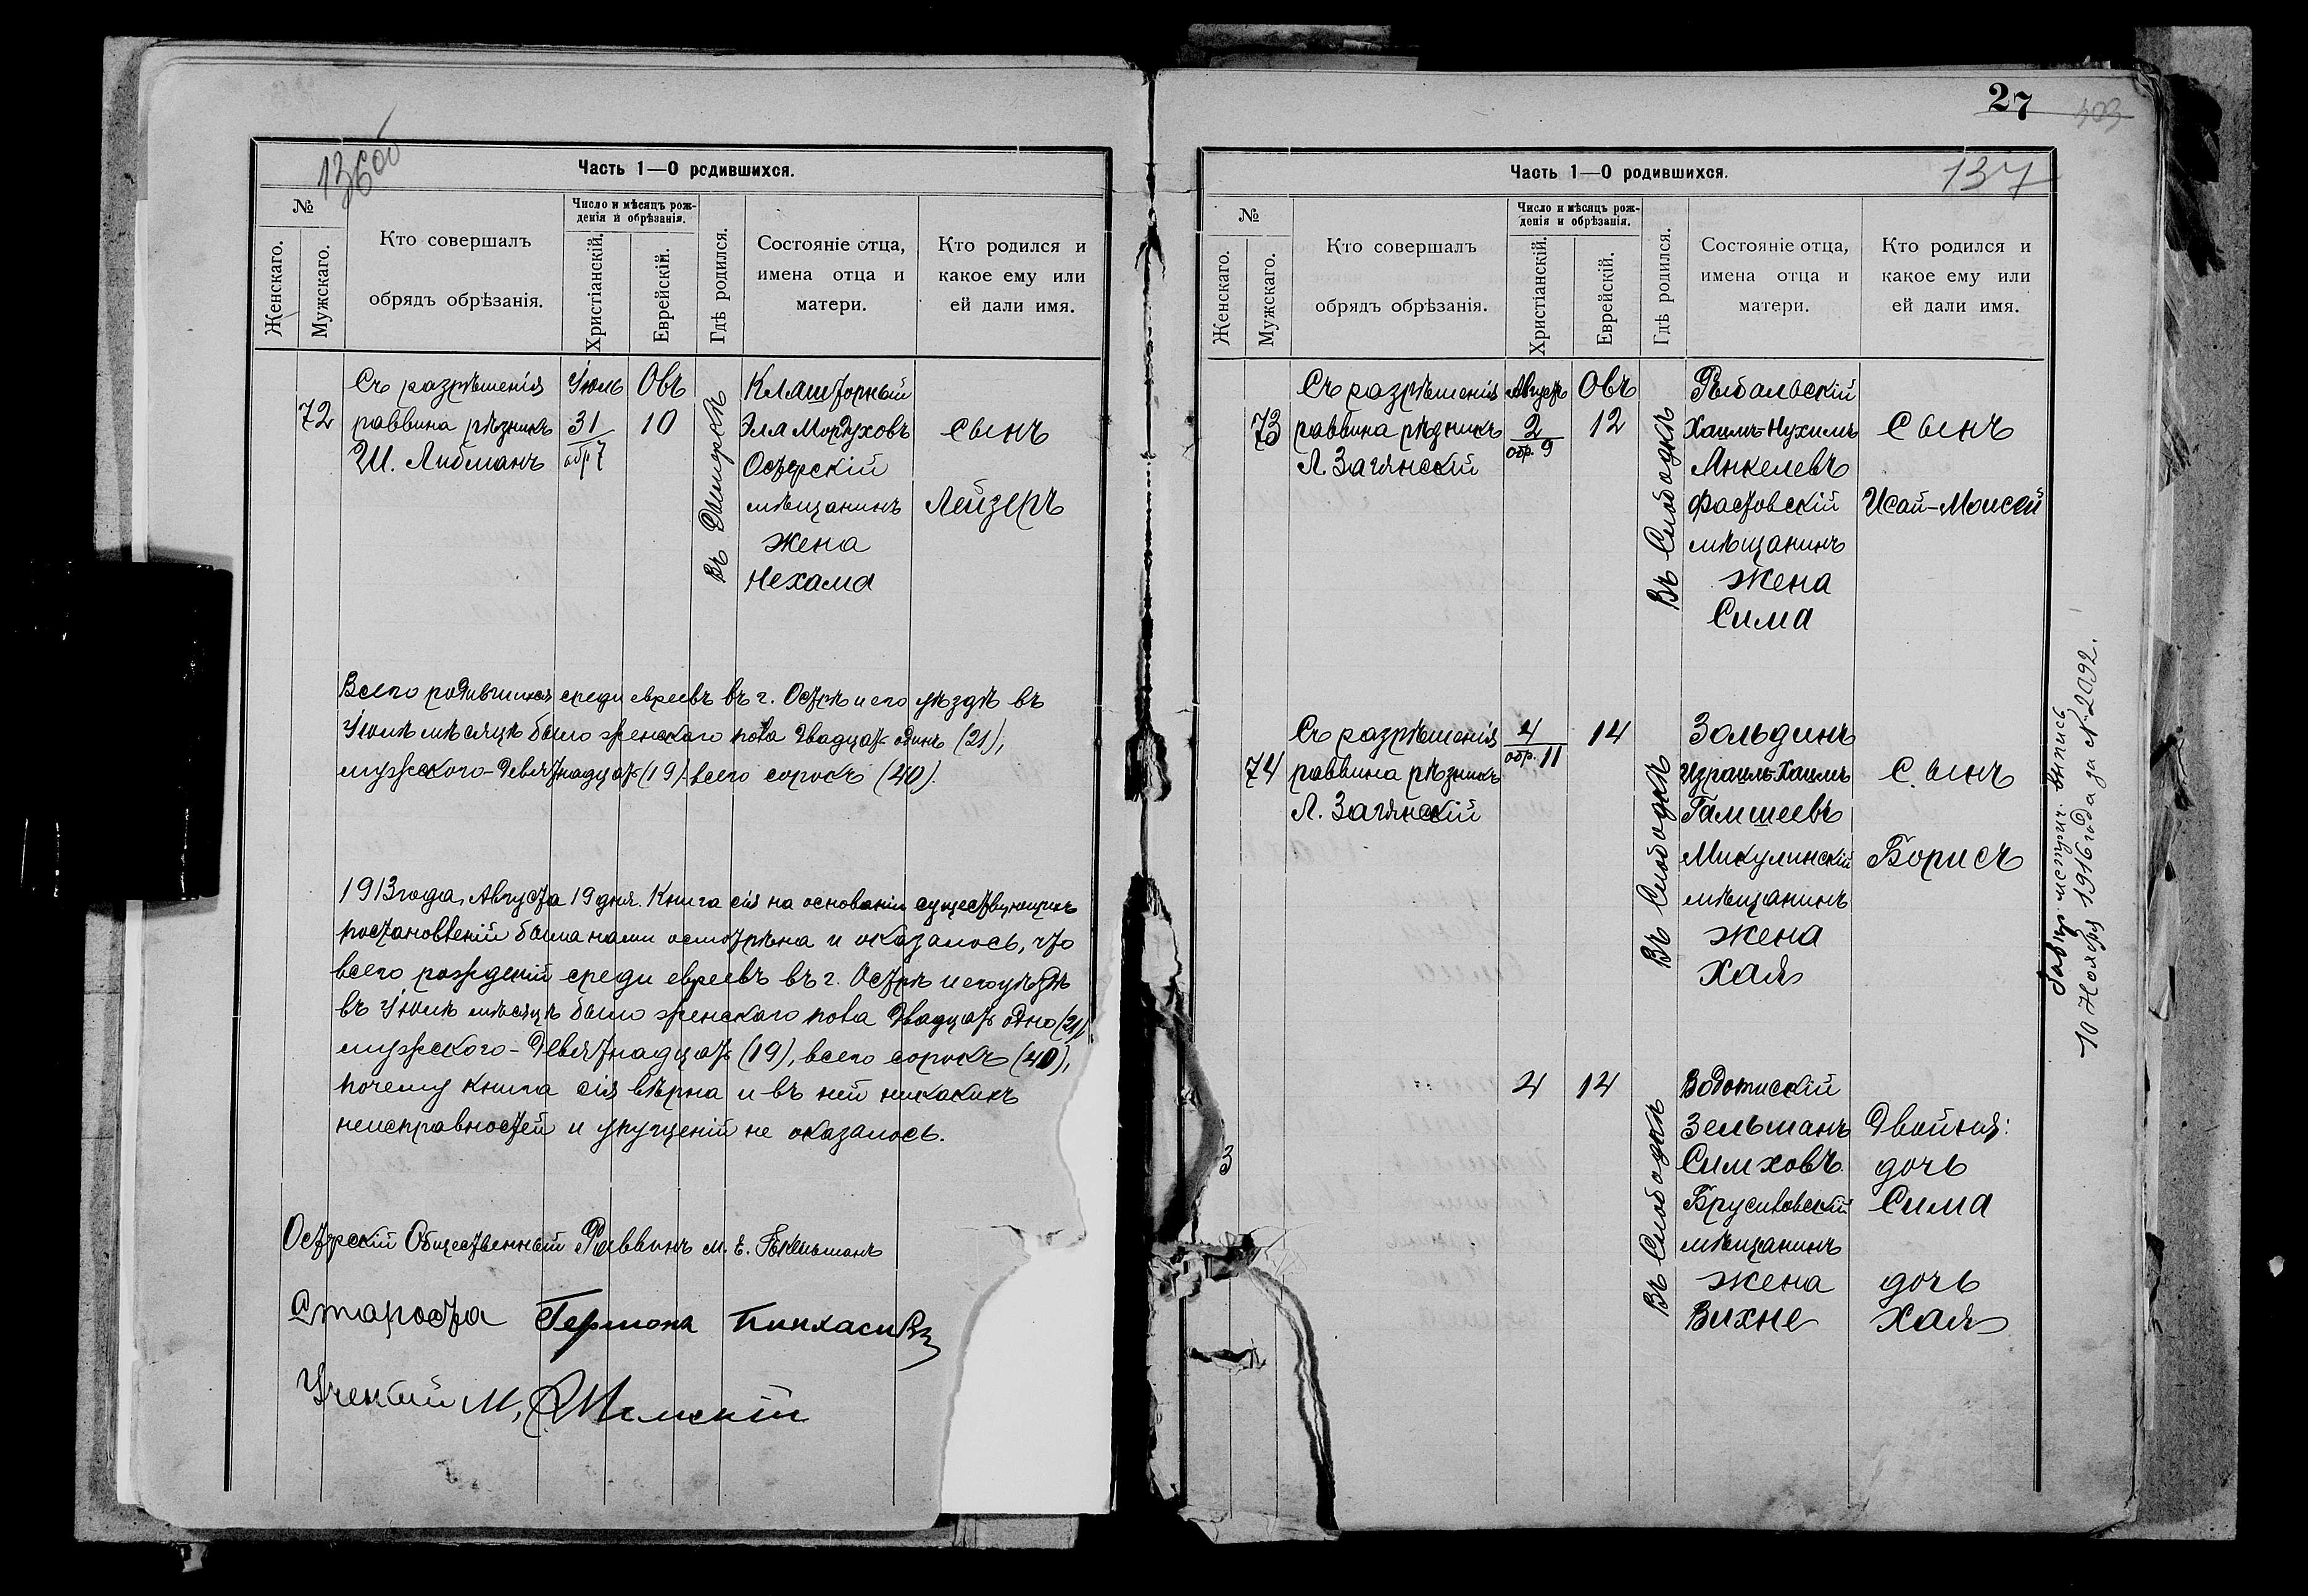 136об
Часть 1—О родившихся.
№
Женскаго.
Мужскаго.
Кто совершалъ
обрядъ обрѣзанія.
Число и мѣсяцъ рож-
денія и обрѣзанія.
Христіанскій.
Еврейскій.
Гдѣ родился.
Состояніе отца,
имена отца и
матери.
Кто родился и
какое ему или
ей дали имя.
72
Съ разрѣшенія
раввина рѣзникъ
Ш. Либманъ
Іюль
31
обр 7
Овъ
10
Въ
Клашторный
Эля Мордуховъ
Остерскій
мѣщанинъ
жена
Нехама
сынъ
Лейзеръ
Всего родившихся среди евреевъ въ г. Острѣ и его уѣздѣ въ
Іюлѣ мѣсяцѣ было женскаго пола двадцать одинъ (21),
мужского-девятнадцать (19) всего сорокъ (40).
1913 года, Августа 19 дня. Книга сія на основаніи существующихъ
постановленій была нами осмотрѣна и оказалось, что
всего рожденій среди евреевъ въ г. Острѣ и его уѣздѣ
въ Іюлѣ мѣсяцѣ было женскаго пола двадцать одно (21),
мужского-девятнадцать (19), всего сорокъ (40),
почему книга сія вѣрна и въ ней никакихъ
неисправностей и упущеній не оказалось.
Остерскій Общественный Раввинъ М. Е.
Староста Германъ
Ученый М.
27
137
Часть 1—О родившихся.
№
Женскаго.
Мужскаго.
Кто совершалъ
обрядъ обрѣзанія.
Число и мѣсяцъ рож-
денія и обрѣзанія.
Христіанскій.
Еврейскій.
Гдѣ родился.
Состояніе отца,
имена отца и
матери.
Кто родился и
какое ему или
ей дали имя.
73
Съ разрѣшенія
раввина рѣзникъ
Л. Загянскій
Августъ
2
обр. 9
Овъ
12
Въ Слободкѣ
Рыбальскій
Хаимъ-Нухимъ
Янкелевъ
Фастовскій
мѣщанинъ
жена
Сима
Сынъ
Исай-Моисей
74
Съ разрѣшенія
раввина рѣзникъ
Л. Загянскій
4
обр. 11
14
Въ Слободкѣ
Зольдинъ
Израиль-Хаимъ
Гамшеевъ
Микулинскій
мѣщанинъ
жена
Хая
Сынъ
Борисъ
3
4
14
Въ Слободкѣ
Водотискій
Зельманъ
Симховъ
Брусиловскій
мѣщанинъ
жена
Вихне
Двойня:
дочь
Сима
дочь
Хая
метрич. выпись
10 Ноября 1916 года за № 2092.